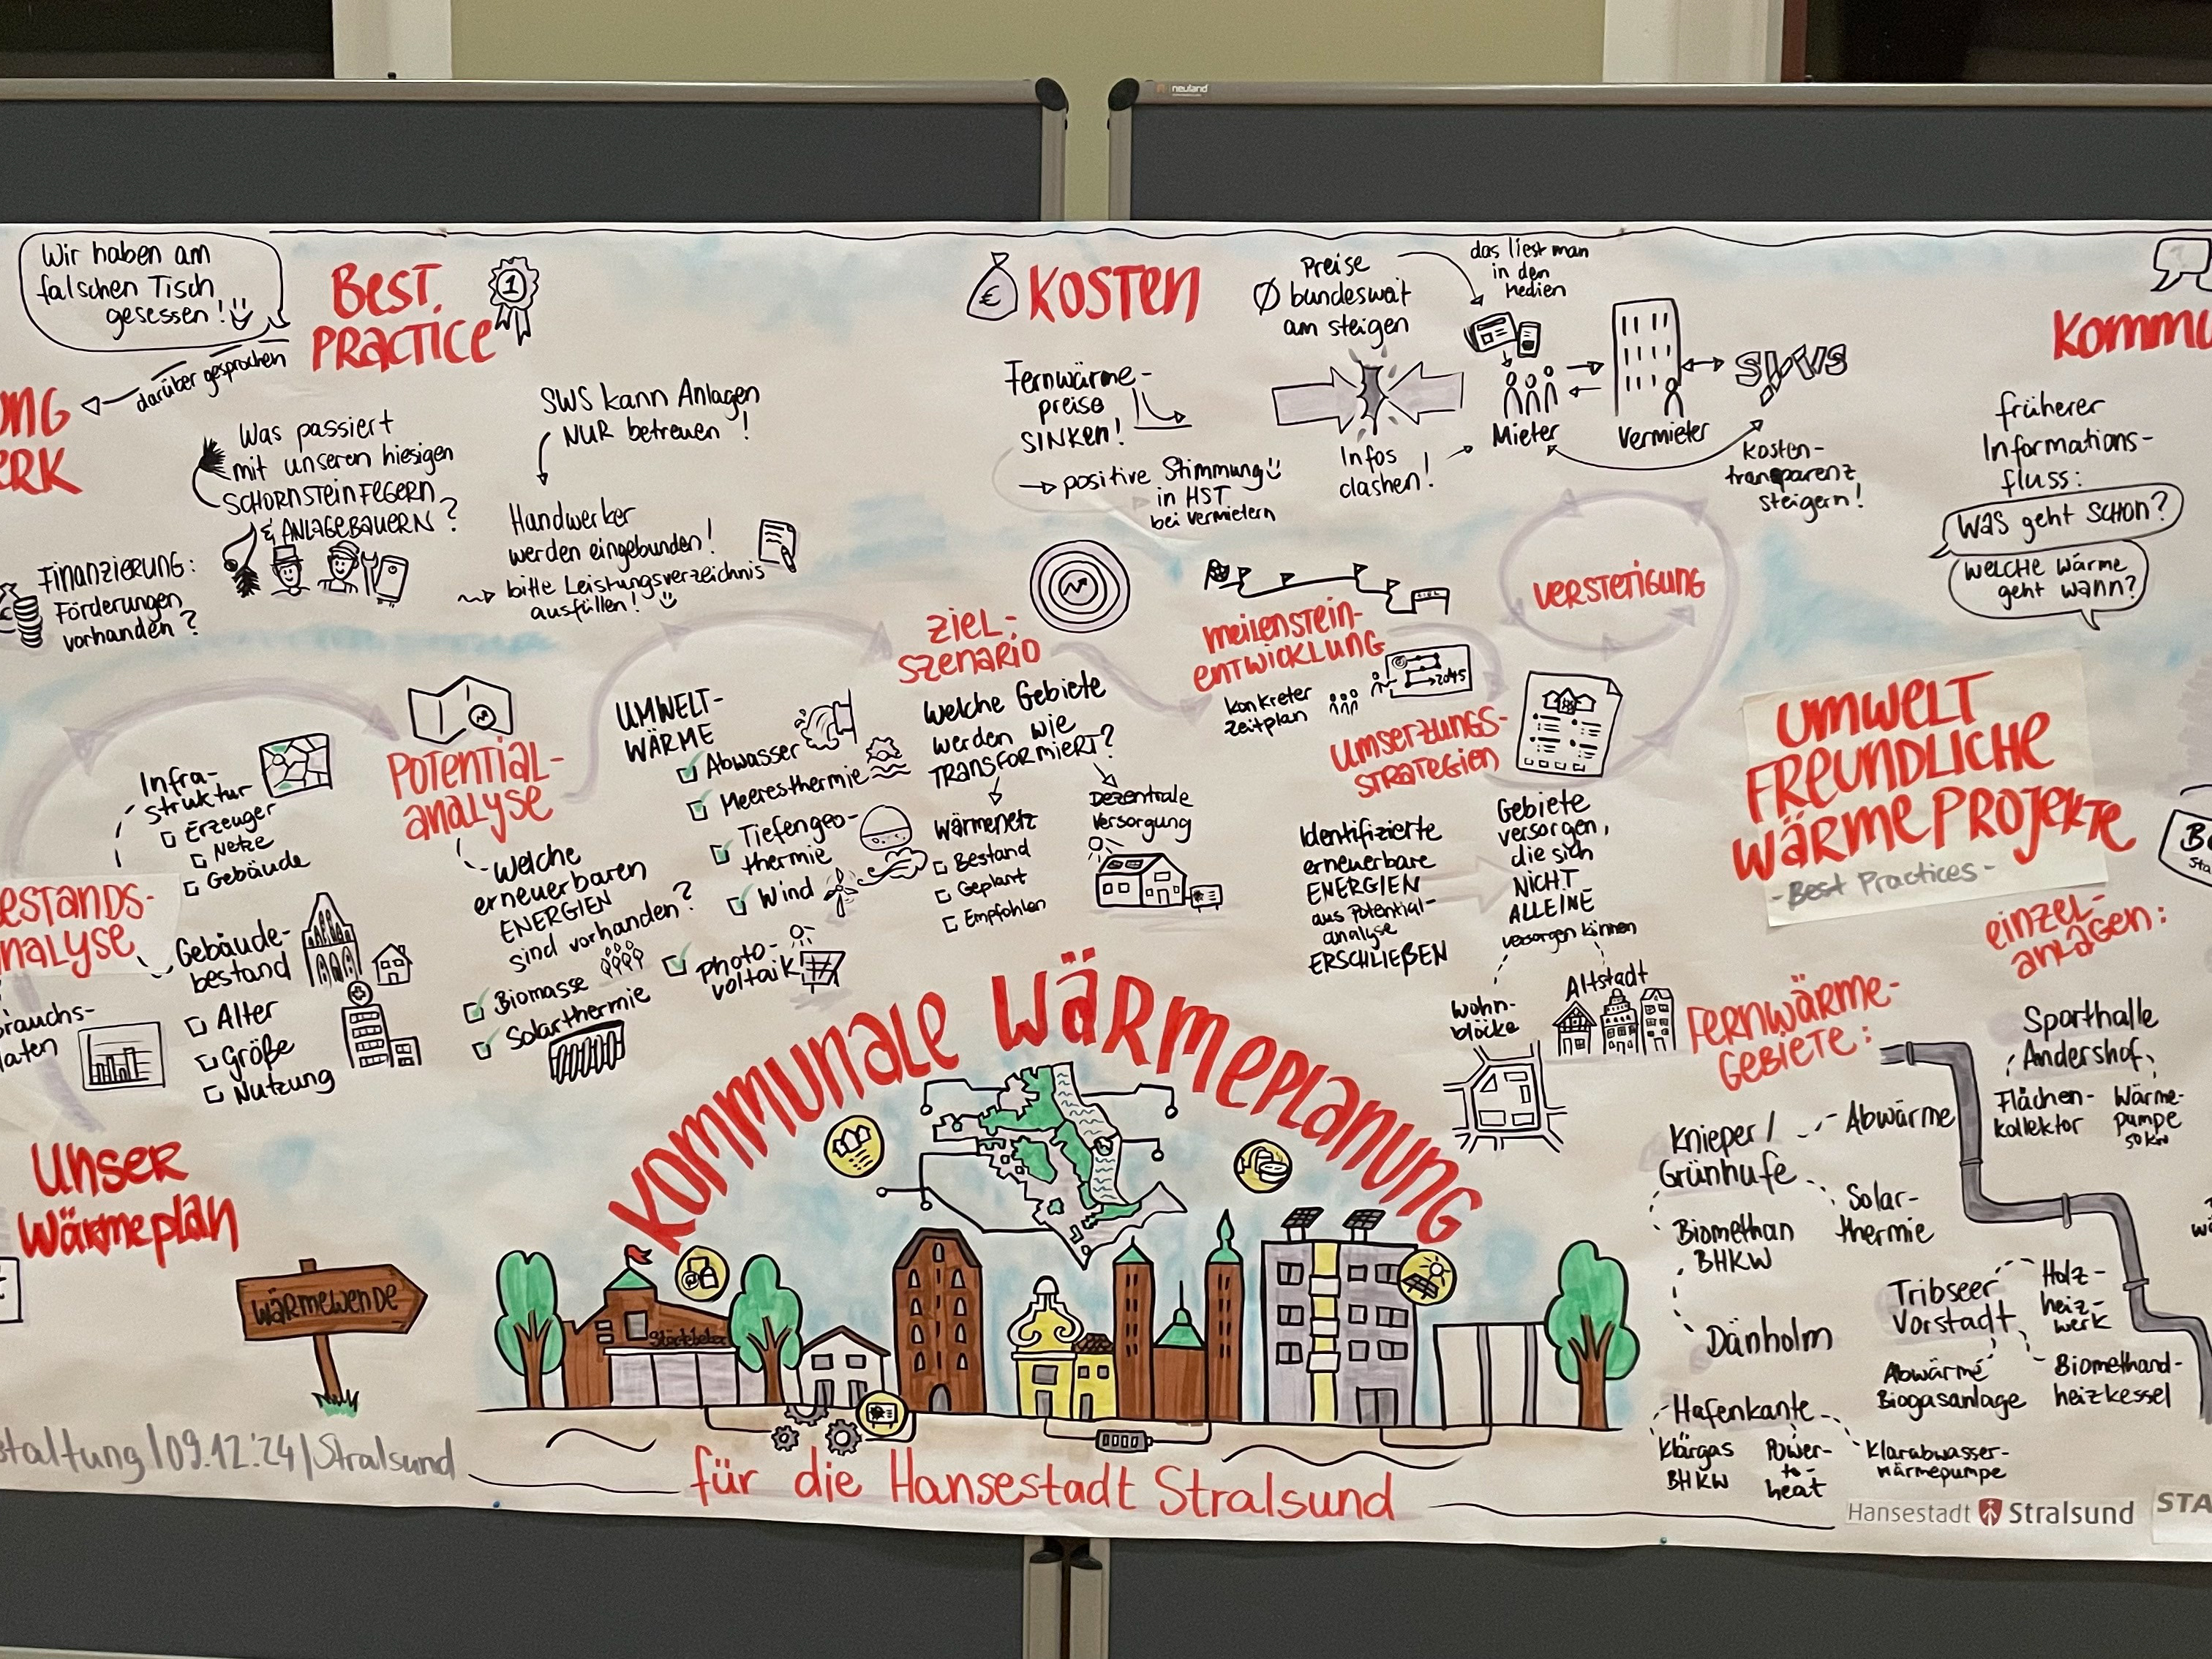 neuland
Wir haben am
falschen Tisch
gesessen!
darüber gesprochen
BEST
PRACTICE
1
Was passiert
mit unseren hiesigen
SCHORNSTEINFEGERN
& ANLAGEBAUERN?
FINANZIERUNG:
Förderungen
vorhanden?
SWS kann Anlagen
NUR betreuen!
Handwerker
werden eingebunden!
bitte Leistungsverzeichnis
ausfüllen!
€ KOSTEN
Fernwärme-
preise
SINKEN!
positive Stimmung
in HST
bei Vermietern
Preise
Ø bundesweit
am steigen
Infos
clashen!
das liest man
in den
Medien
Mieter
Vermieter
SWS
Kosten-
transparenz
steigern!
früherer
Informations-
fluss:
Was geht SCHON?
WELCHE Wärme
geht wann?
Infra-
struktur
Erzeuger
Netze
Gebäude
Gebäude-
bestand
Alter
Größe
Nutzung
POTENTIAL-
ANALYSE
Welche
erneuerbaren
ENERGIEN
sind vorhanden?
Biomasse
Solarthermie
UMWELT-
WÄRME
Abwasser
Meeresthermie
Tiefengeo-
thermie
Wind
Photo-
voltaik
ZIEL-
SZENARIO
Welche Gebiete
werden wie
TRANSFORMIERT?
Wärmenetz
Bestand
Geplant
Empfohlen
Dezentrale
Versorgung
MEILENSTEIN-
ENTWICKLUNG
ZIEL
konkreter
Zeitplan
2045
VERSTETIGUNG
UMSERZUNGS-
STRATEGIEN
Identifizierte
erneuerbare
ENERGIEN
aus Potential-
analyse
ERSCHLIEßEN
Gebiete
versorgen,
die sich
NICHT
ALLEINE
versorgen können
Wohn-
blöcke
Altstadt
UMWELT
FREUNDLICHE
WÄRMEPROJEKTE
- Best Practices -
EINZEL-
ANLAGEN:
Sporthalle
Andershof
Flächen-
kollektor
Wärme-
pumpe
50 kW
FERNWÄRME-
GEBIETE:
Knieper /
Grünhufe
Abwärme
Solar-
thermie
Biomethan
BHKW
Dänholm
Tribseer
Vorstadt
Holz-
heiz-
werk
Abwärme
Biogasanlage
Biomethand-
heizkessel
Hafenkante
Klärgas
BHKW
Power-
to-
heat
Klarabwasser-
wärmepumpe
Unser
Wärmeplan
WÄRMEWENDE
09.12.'24 | Stralsund
KOMMUNALE WÄRMEPLANUNG
Störtebeker
für die Hansestadt Stralsund
Hansestadt Stralsund